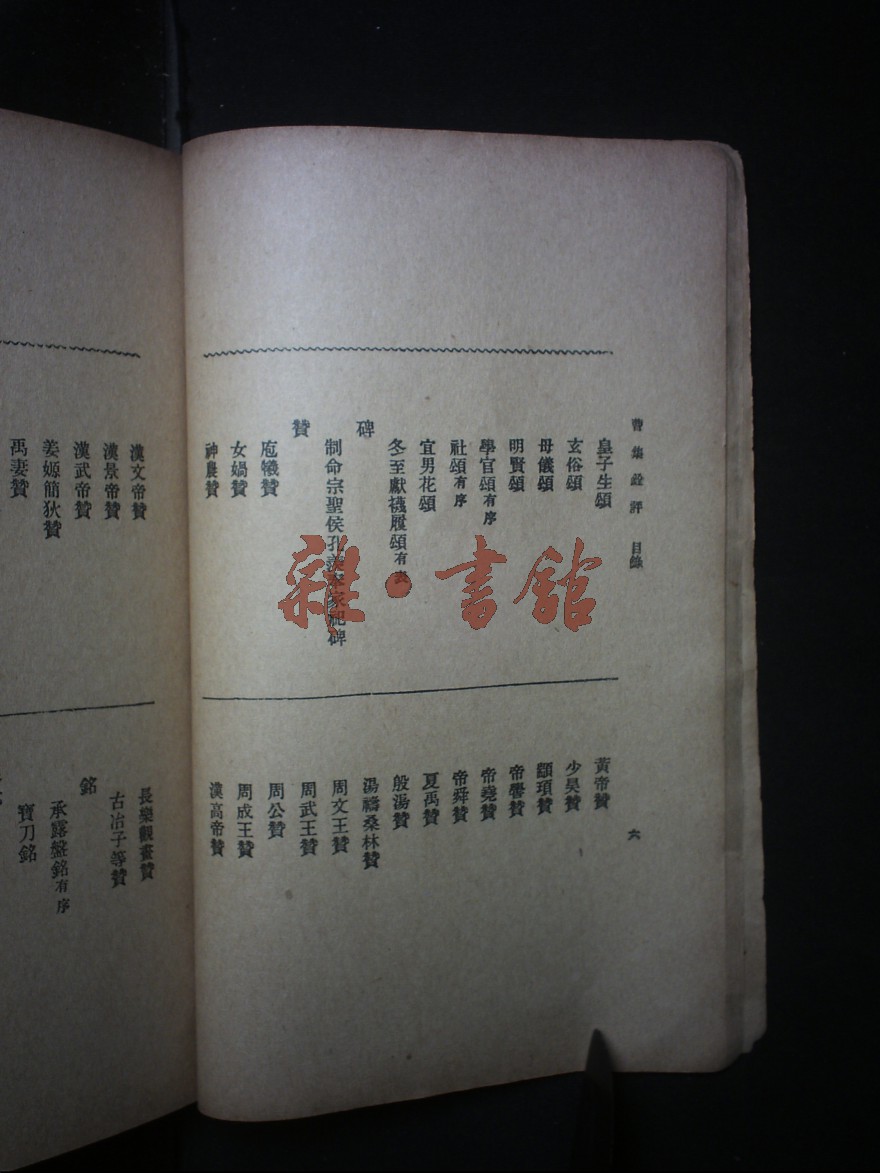 曹集詮評 目錄
六
皇子生頌
玄俗頌
母儀頌
明賢頌
學官頌有序
社頌有序
宜男花頌
冬至獻襪履頌有表
碑
制命宗聖侯孔羨奉家祀碑
贊
庖犧贊
女媧贊
神農贊
黃帝贊
少昊贊
顓頊贊
帝嚳贊
帝堯贊
帝舜贊
夏禹贊
殷湯贊
湯禱桑林贊
周文王贊
周武王贊
周公贊
周成王贊
漢高帝贊
漢文帝贊
漢景帝贊
漢武帝贊
姜嫄簡狄贊
禹妻贊
長樂觀畫贊
古冶子等贊
銘
承露盤銘有序
寶刀銘
雜·書館